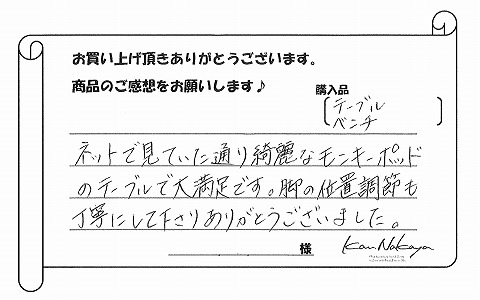 お買い上げ頂きありがとうございます。
商品のご感想をお願いします♪
購入品
テーブル
ベンチ
ネットで見ていた通り綺麗なモンキーポッド
のテーブルで大満足です。脚の位置調節も
丁寧にして下さりありがとうございました。
様
Kan Nakaya